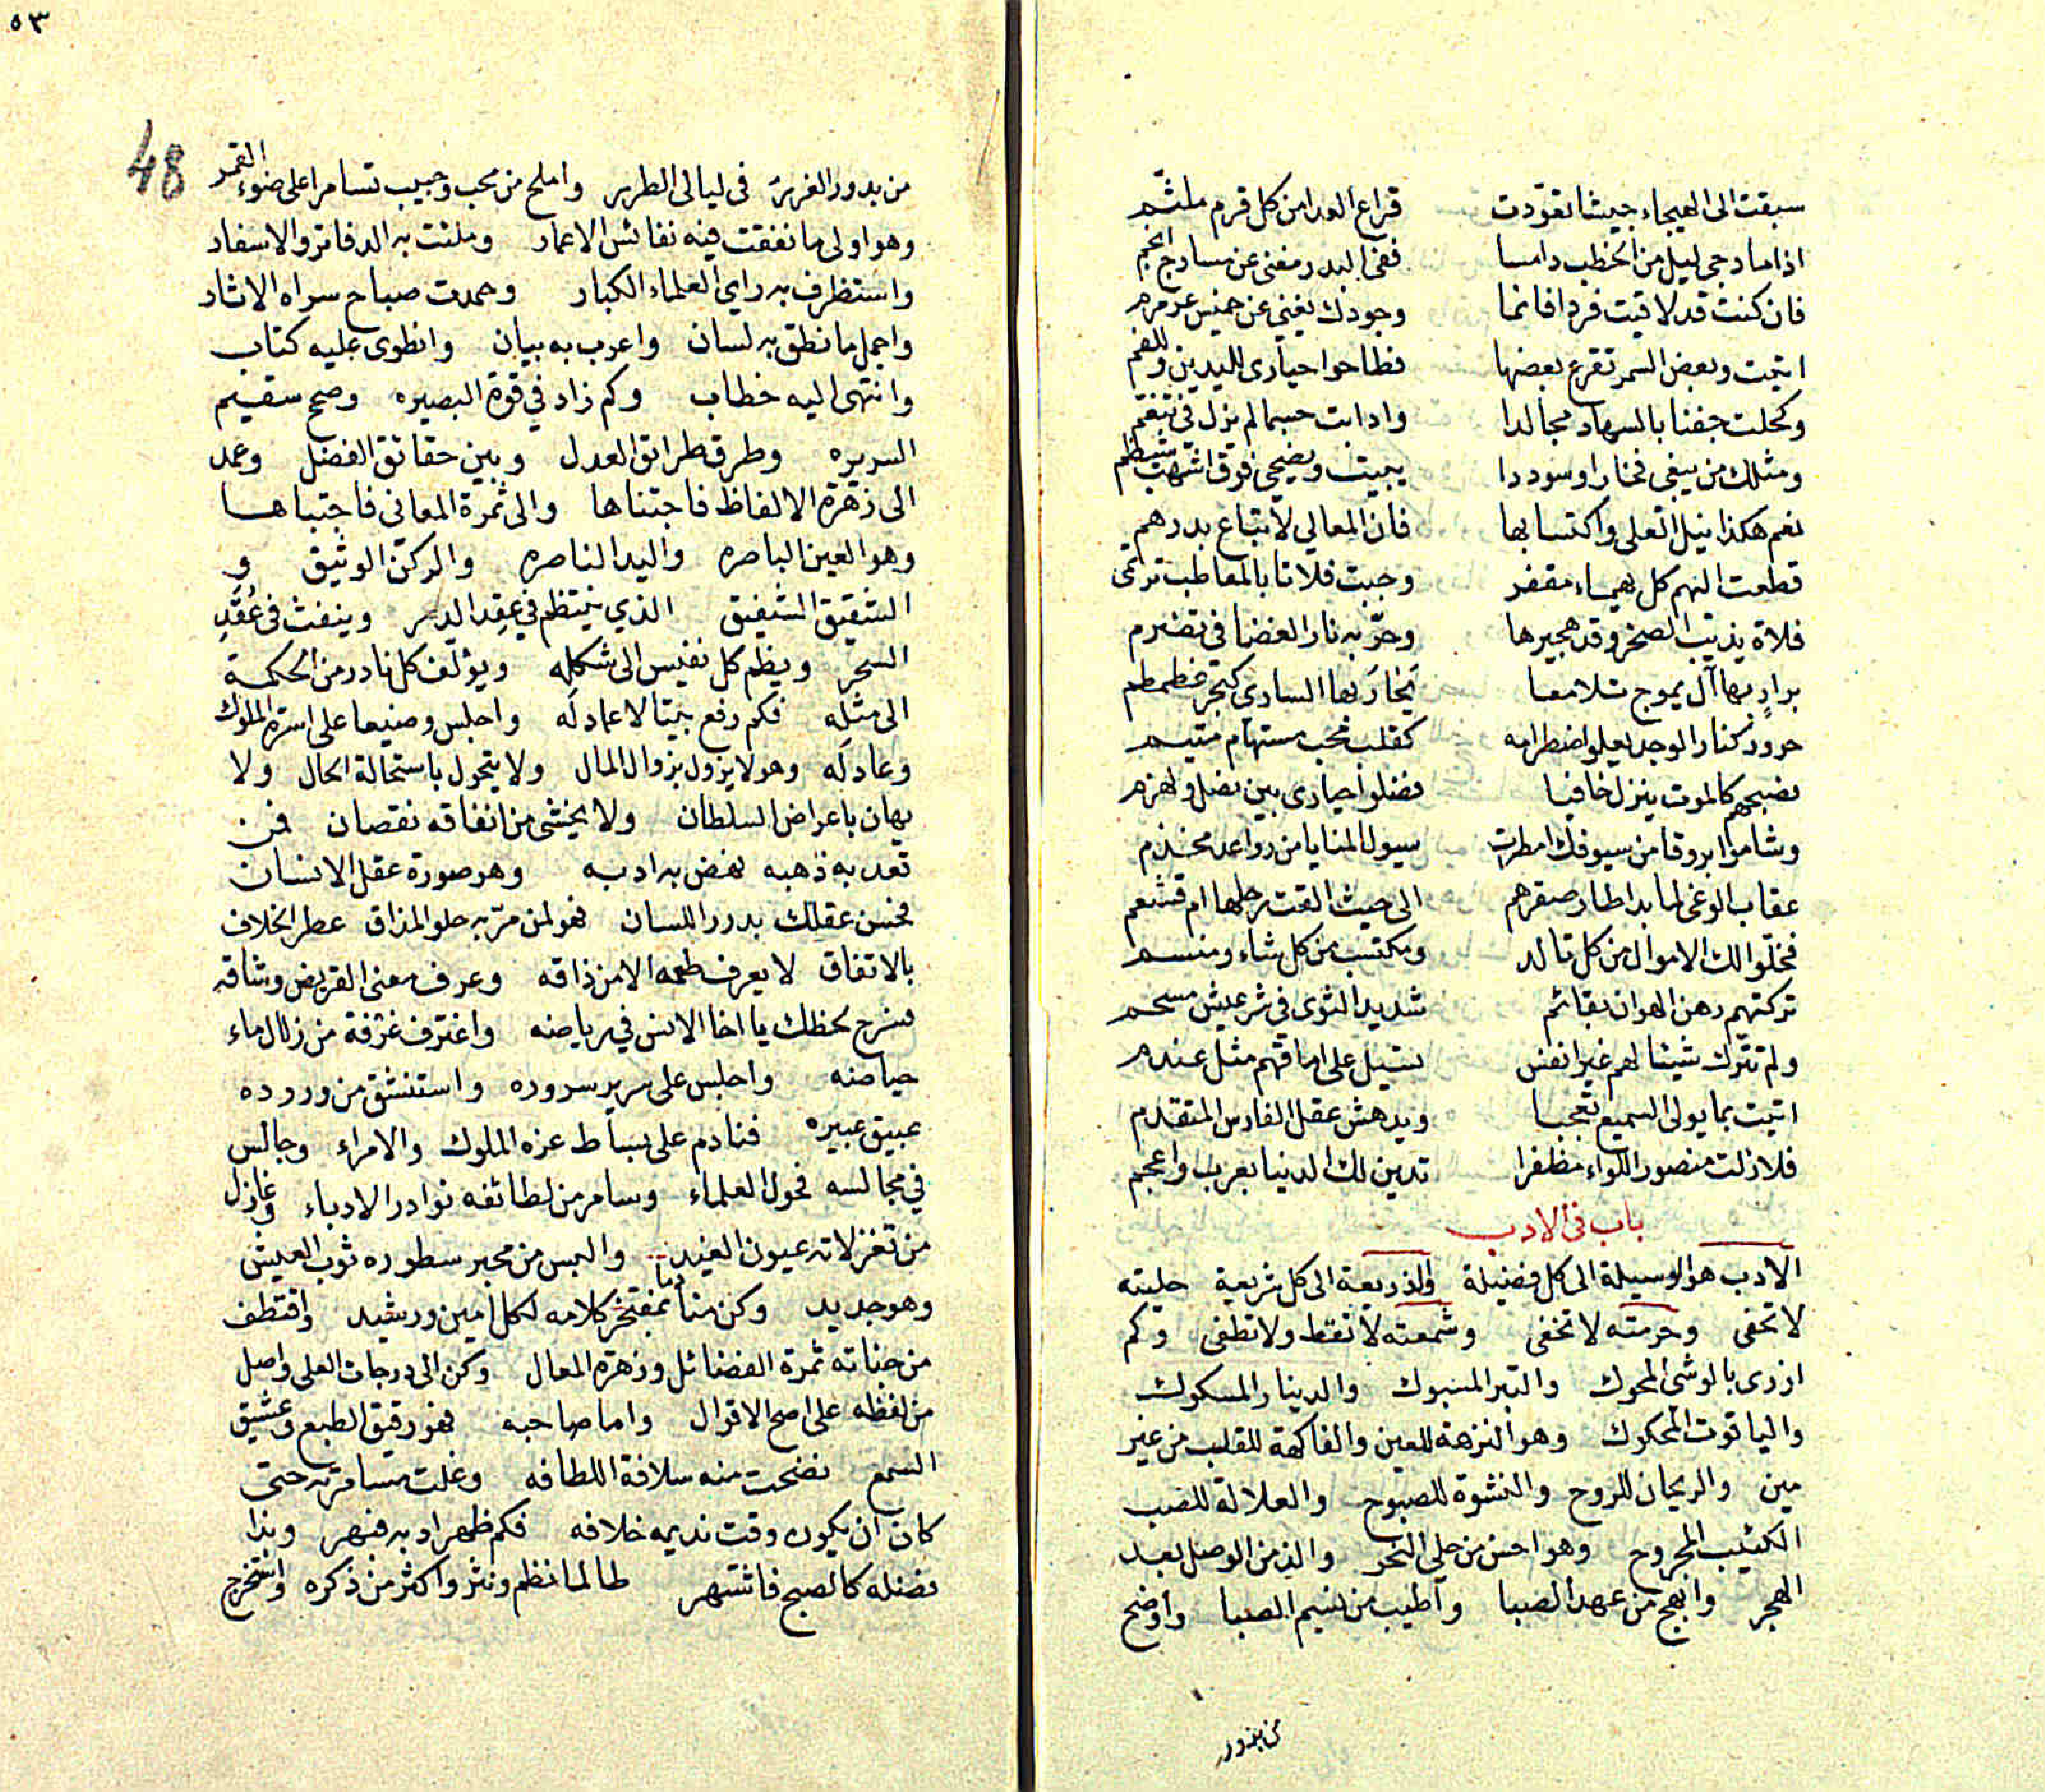 سبقت الى الهيجاء جيشا تعوّدت قراع العدا من كل قرم ملثّم
اذا ما دجى ليل من الخطب دامسا ففى البدر مغنى عن مسارج انجم
فان كنت قد لاقيت فردا فانما وجودك يغنى عن خميس عرمرم
اتيت وبعض السمر تقرع بعضها فطاحوا حيارى لليدين وللفم
وكحلت جفنا بالسهاد مجالدا وادابت جسما لم يزل فى تنعّم
ومثلك من يبغى فخارا وسوددا يبيت ويضحى فوق اشهب شيظم
نعم هكذا نيل العلى واكتسابها فان المعالي لا تباع بدرهم
قطعت اليهم كل يهماء مقفر وجبت فلاتا بالمعاطب ترتمى
فلاة يذيب الصخر وقد هجيرها وحرّ به نار الغضا فى تضرم
برادٍ بها آل يموج تلامعا يَحارُ بها السارى كبحر غطمطم
حرور كنار الوجد يعلو اضطرامه كقلب محب مستهام متيم
نصبحهم كالموت ينزل خافيا فضلوا حيارى بين نصل ولهزم
وشاموا بروقا من سيوفك امطرت سيول المنايا من رواعد مخذم
عقاب الوغى لما بدا طار صقرهم الى حيث القت رحلها ام قشعم
فخلّوا لك الاموال من كل تالد ومكتسب من كل شاء ومنسم
تركتهم رهن الهوان بقائم شديد الثوى فى شر عيش مسحم
ولم تترك شيئا لهم غير انفس تسيل على اماقهم مثل عندم
اتيت بما يولى السميع تعجبا ويدهش عقل الفارس المتقدم
فلا زلت منصور اللواء مظفرا تدين لك الدنيا بعرب واعجم
باب فى الادب
الادب هو الوسيلة الى كل فضيلة والذريعة الى كل شريعة حليته
لا تحفى وحرمته لا تخفى وشمعته لا تقط ولا تطفى وكم
ازرى بالوشى المحوك والتبر المسبوك والدينار المسكوك
والياقوت المحكوك وهو النزهة للعين والفاكهة للقلب من غير
مين والريحان للروح والنشوة للصبوح والعلالة للصب
الكئيب المجروح وهو احسن من حلى النحر والذ من الوصل بعد
الهجر وابهج من عهد الصبا واطيب من نسيم الصبا واوضح
من بدور
٥٣
48
من بدور الغرر فى ليالى الطرر واملح من محب وحبيب تسامرا على ضوء القمر
وهو اولى ما نفقت فيه نفائس الاعمار وملئت به الدفاتر والاسفار
واستظرف به راى العلماء الكبار وحمدت صباح سراه الاثار
واجمل ما نطق به لسان واعرب به بيان وانطوى عليه كتاب
وانتهى اليه خطاب وكم زاد فى قوة البصيره وصح سقيم
السريره وطرق طرائق العدل وبين حقائق الفضل وعمد
الى زهرة الالفاظ فاجتناها والى ثمرة المعانى فاجتباها
وهو العين الباصره واليد الناصره والركن الوثيق و
الشقيق الشفيق الذي ينتظم فى عِقِد الدر وينفث فى عُقَدِ
السحر ويظم كل نفيس الى شكله ويؤلف كل نادر من الحكمة
الى مثله فكم رفع بيتا لا عماد له واجلس وضيعا على اسرة الملوك
وعادله وهو لا يزول بزوال المال ولا يتحول باستحالة الحال ولا
يهان باعراض السلطان ولا يخشى من انفاقه نقصان فمن
تعد به ذهبه نهض به ادبه وهو صورة عقل الانسان
فحسن عقلك بدرر اللسان فهو لمن مرّ به حلو المذاق عطر الخلاف
بالاتفاق لا يعرف طعمه الا من ذاقه وعرف معنى القريض وشاقه
فسرح لحظك يا اخا الانس فى رياضه واغترف غرفة من زلال ماء
حياضه واجلس على سرير سروره واستنشق من وروده
عبيق عبيره فنادم على بساط عزه الملوك والامراء وجالس
فى مجالسه فحول العلماء وسامر من لطائفه نوادر الادباء وغازل
من تغزلاته عيون الغيد والبس من محبر سطوره ثوب العيش
وهو جديد وكن منادما بمفتخر كلامه لكل امين ورشيد واقتطف
من جناته ثمرة الفضائل وزهرة المعال وكن الى درجات العلى واصل
من لفظه على اصح الاقوال واما صاحبه فهو رقيق الطبع وعشيق
السمع نضحت منه سلافة اللطافه وغلت مسامرته حتى
كان ان يكون وقت نديمه خلافه فكم ظهر ادبه فبهر وبدا
فضله كالصبح فاشتهر طالما نظم ونثر واكثر من ذكره واستخرج